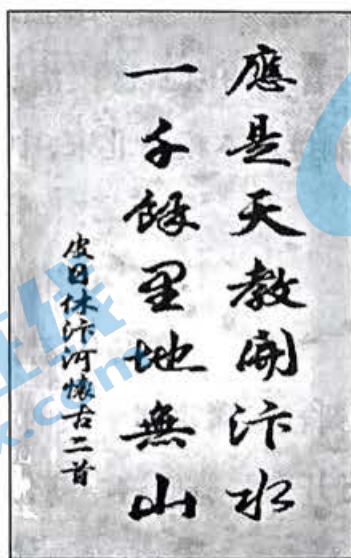 應是天教開汴水
一千餘里地無山
皮日休汴河懷古二首